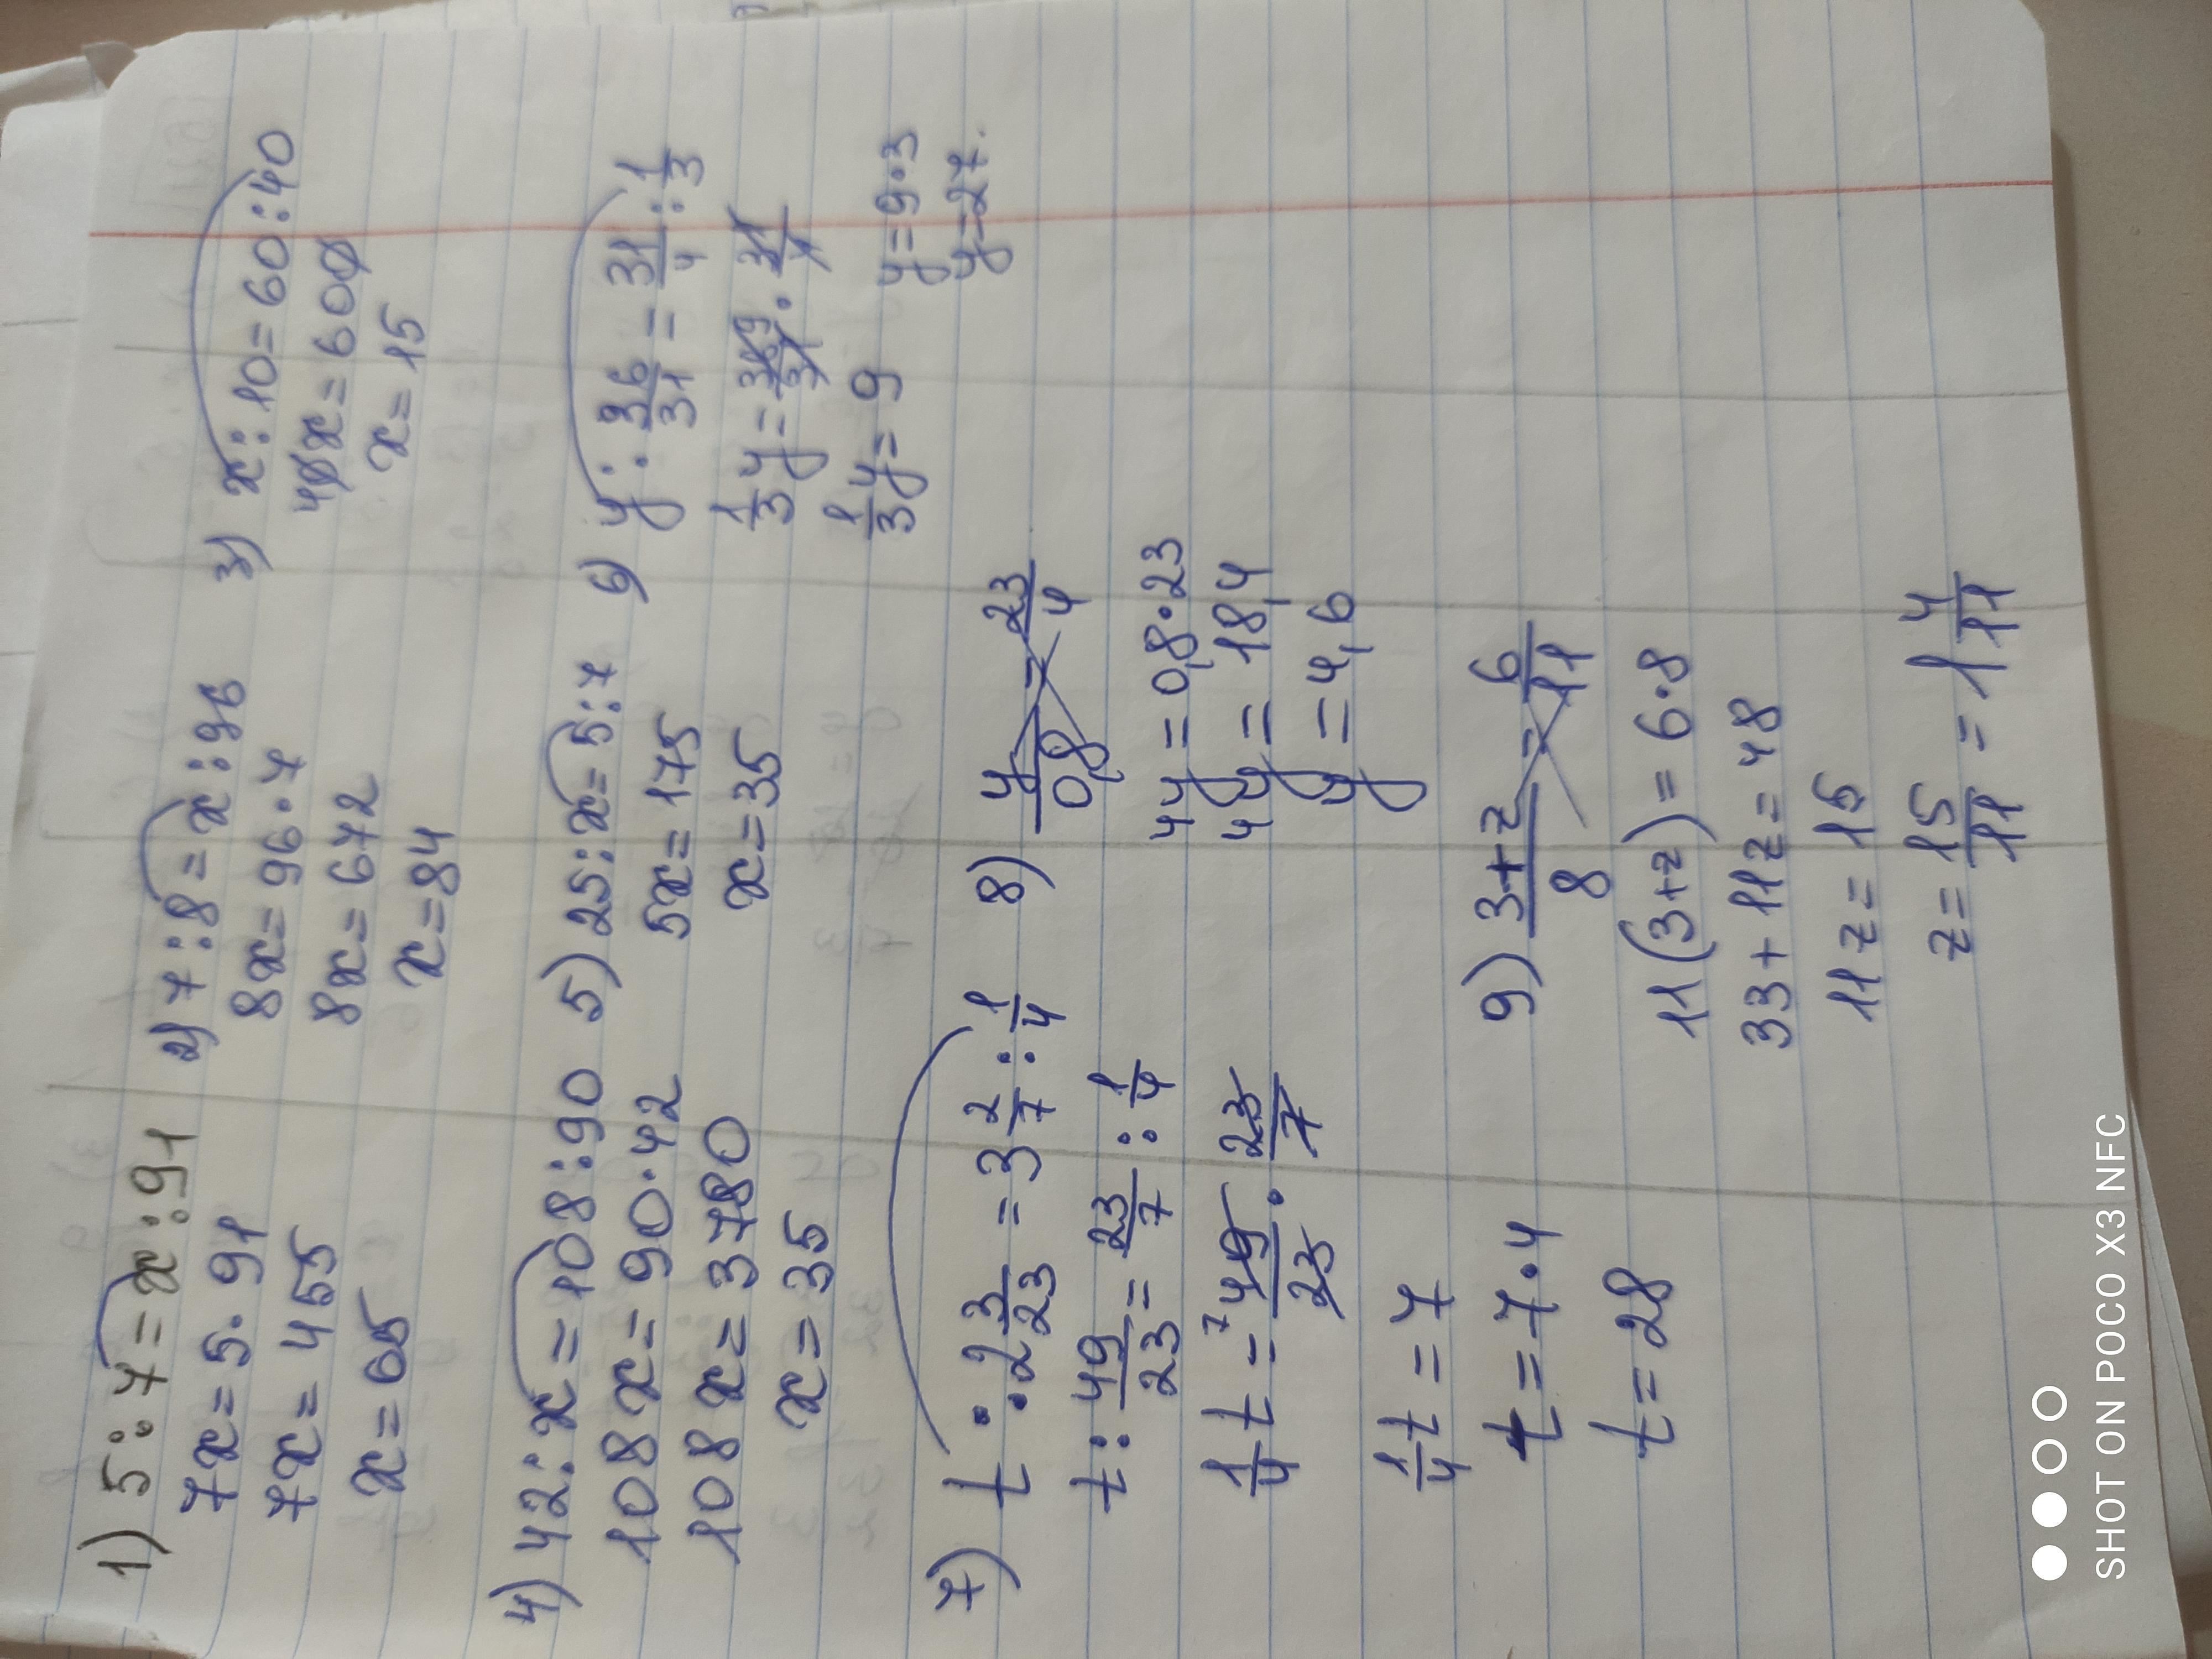 1) 5:7=x:91
7x=5·91
7x=455
x=65
2) 7:8=x:96
8x=96·7
8x=672
x=84
3) x:10=60:40
40x=600
x=15
4) 42:x=108:90
108x=90·42
108x=3780
x=35
5) 25:x=5:7
5x=175
x=35
6) y:36/31=31/4:1/3
1/3y=36/31·31/4
1/3y=9
y=9·3
y=27.
7) t:2 3/23=3 2/7:1/4
t:49/23=23/7:1/4
1/4t=49/23·23/7
1/4t=7
t=7·4
t=28
8) y/0,8=23/4
4y=0,8·23
4y=18,4
y=4,6
9) 3+z/8=6/11
11(3+z)=6·8
33+11z=48
11z=15
z=15/11=1 4/11
SHOT ON POCO X3 NFC